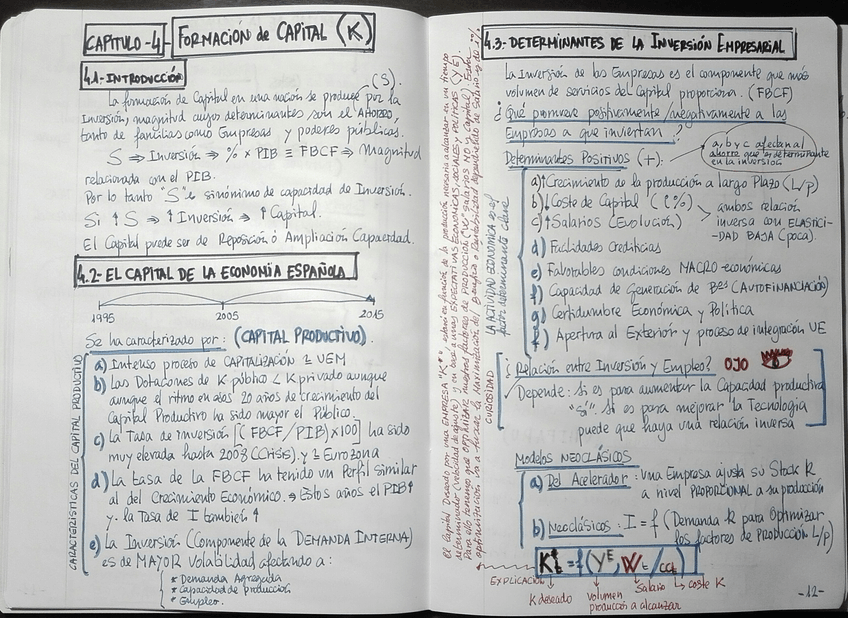 CAPITULO-4 FORMACIÓN de CAPITAL (K)
4.1-INTRODUCCIÓN
(S).
La formación de Capital en una nación se produce por la
Inversión, magnitud cuyos determinantes son el AHORRO,
tanto de familias como Empresas y poderes públicos.
S ⇒ Inversión ⇒ % x PIB ≡ FBCF ⇒ Magnitud
relacionada con el PIB.
Por lo tanto "S" es sinónimo de capacidad de Inversión.
Si ↑ S ⇒ ↑ Inversión ⇒ ↑ Capital.
El Capital puede ser de Reposición ó Ampliación Capacidad.
4.2-EL CAPITAL DE LA ECONOMÍA ESPAÑOLA
1995 2005 2015
Se ha caracterizado por: (CAPITAL PRODUCTIVO).
CARACTERÍSTICAS DEL CAPITAL PRODUCTIVO
a) Intenso proceso de CAPITALIZACIÓN UEM
b) Las Dotaciones de K público < K privado aunque
aunque el ritmo en esos 20 años de crecimiento del
Capital Productivo ha sido mayor el Público.
c) La Tasa de inversión [(FBCF/PIB)x100] ha sido
muy elevada hasta 2008 (CRISIS) y Eurozona
d) La tasa de la FBCF ha tenido un Perfil similar
al del Crecimiento Económico. ⇒ Estos años el PIB↑
y la Tasa de I también ↑
e) La Inversión (Componente de la DEMANDA INTERNA)
es de MAYOR Volatilidad afectando a:
* Demanda Agregada
* Capacidad de producción
* Empleo.
El Capital Deseado por una EMPRESA "K*" estará en función de la producción necesaria a alcanzar en un tiempo
determinado (velocidad de ajuste) y en base a unas EXPECTATIVAS ECONÓMICAS, SOCIALES y POLÍTICAS (YE)
Para ello tenemos que OPTIMIZAR nuestros factores de PRODUCCIÓN ("VC" salarios MO y Capital). Esta
optimización va a afectar a la Maximización del Beneficio o Rentabilidad
CURIOSIDAD
4.3-DETERMINANTES DE LA INVERSIÓN EMPRESARIAL
La Inversión de las Empresas es el componente que más
volumen de servicios del Capital proporciona. (FBCF)
¿Qué promueve positivamente/negativamente a las
Empresas a que inviertan?
Determinantes Positivos (+):
a, b y c afectan al
ahorro que es determinante
en la inversión
LA ACTIVIDAD ECONÓMICA es el
factor determinante clave
a)↑Crecimiento de la producción a largo Plazo (L/p)
b)↓Coste de Capital (i%)
c)↑Salarios (Evolución)
ambos relación
inversa con ELASTICI-
DAD BAJA (poca).
d) Facilidades Crediticias
e) Favorables condiciones MACRO-económicas
f) Capacidad de Generación de Bºs (AUTOFINANCIACIÓN)
g) Certidumbre Económica y Política
h) Apertura al Exterior y proceso de integración UE
¿Relación entre Inversión y Empleo? OJO
Depende: Si es para aumentar la Capacidad productiva
"Si". Si es para mejorar la Tecnología
puede que haya una relación inversa
Modelos NEOCLÁSICOS
a) Del Acelerador: una Empresa ajusta su Stock K
a nivel PROPORCIONAL a su producción
b) Neoclásicos: I = f (Demanda K para Optimizar
los factores de PRODUCCIÓN L/p)
K*t = f (YE, Wc/cck)
EXPLICACIÓN
K deseado
volumen
producción a alcanzar
Salario
coste K
-12-